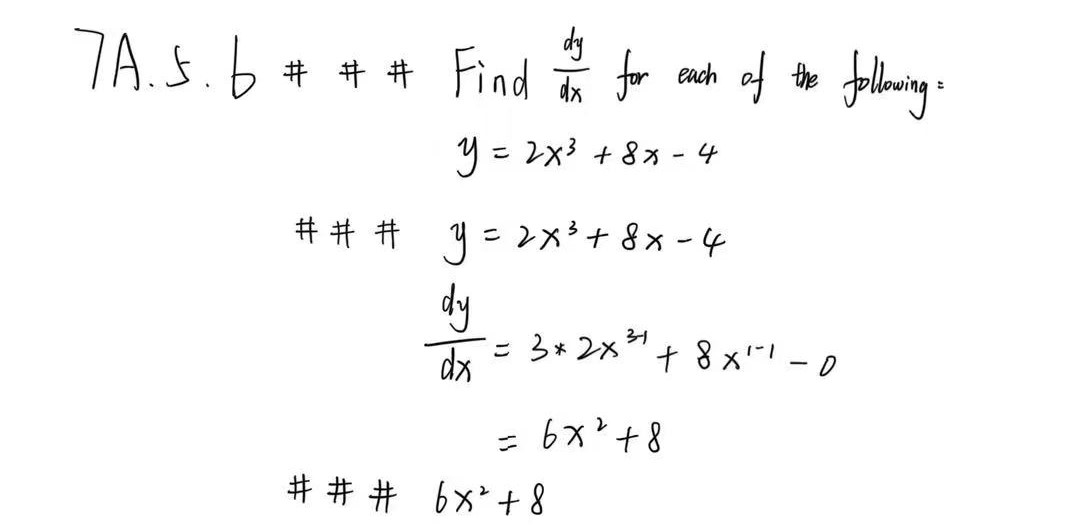 7A.5.b # # # Find dy/dx for each of the following:
y = 2x³ + 8x - 4
# # # y = 2x³ + 8x - 4
dy/dx = 3 * 2x³⁻¹ + 8x¹⁻¹ - 0
= 6x² + 8
# # # 6x² + 8